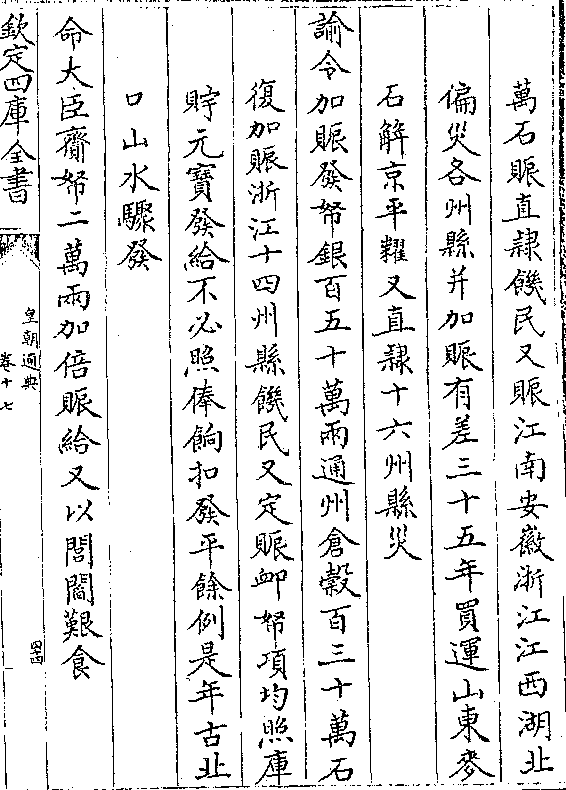 萬石賑直隸饑民又賑江南安徽浙江江西湖北
偏災各州縣并加賑有差三十五年買運山東麥
石解京平糶又直隸十六州縣災
諭令加賑發帑銀百五十萬兩通州倉穀百三十萬石
復加賑浙江十四州縣饑民又定賑䘏帑項均照庫
貯元寳發給不必照俸餉扣發平餘例是年古北
口山水驟發
命大臣齎帑二萬兩加倍賑給又以閭閻艱食
欽定四庫全書
皇朝通典
卷十七
四十四